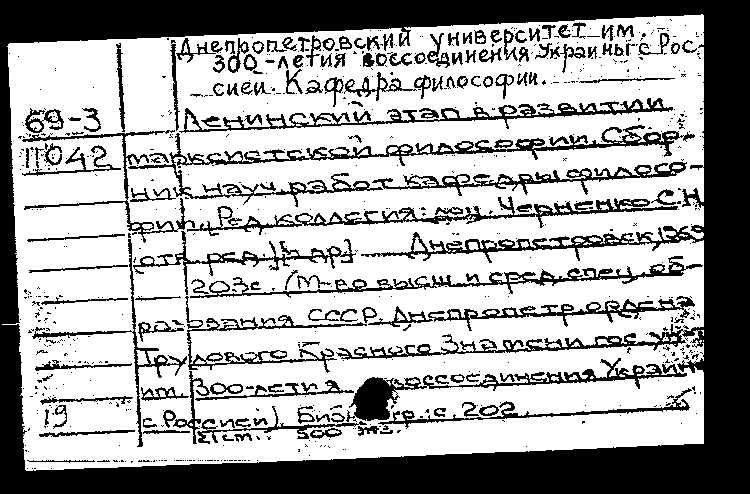 Днепропетровский университет им.
300-летия воссоединения Украины с Рос-
сией. Кафедра философии.
69-3 Ленинский этап в развитии
11042 марксистской философии. Сбор-
ник науч. работ кафедры филосо-
фии. [Ред. коллегия: доц. Черненко С.Н.
(отв. ред.) и др.] Днепропетровск, 1969
203с. (М-во высш. и сред. спец. об-
разования СССР. Днепропетр. ордена
Трудового Красного Знамени гос. ун-т
им. 300-летия воссоединения Украины
19 с Россией). с. 202.
500